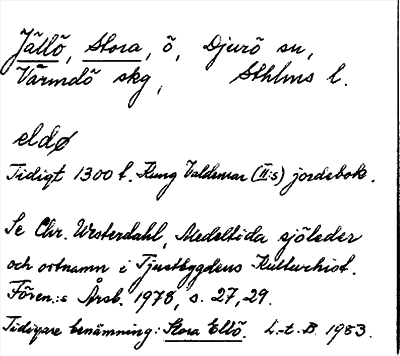 Jällö, Stora, ö, Djurö sn,
Värmdö skg, Sthlms l.
eldø
Tidigt 1300 t. Kung Valdemar (II:s) jordebok.
Se Chr. Westerdahl, Medeltida sjöleder
och ortnamn i Tjustbygdens Kulturhist.
Fören.:s Årsb. 1978, s. 27, 29.
Tidigare benämning: Stora Ellö. L-t. B. 1983.